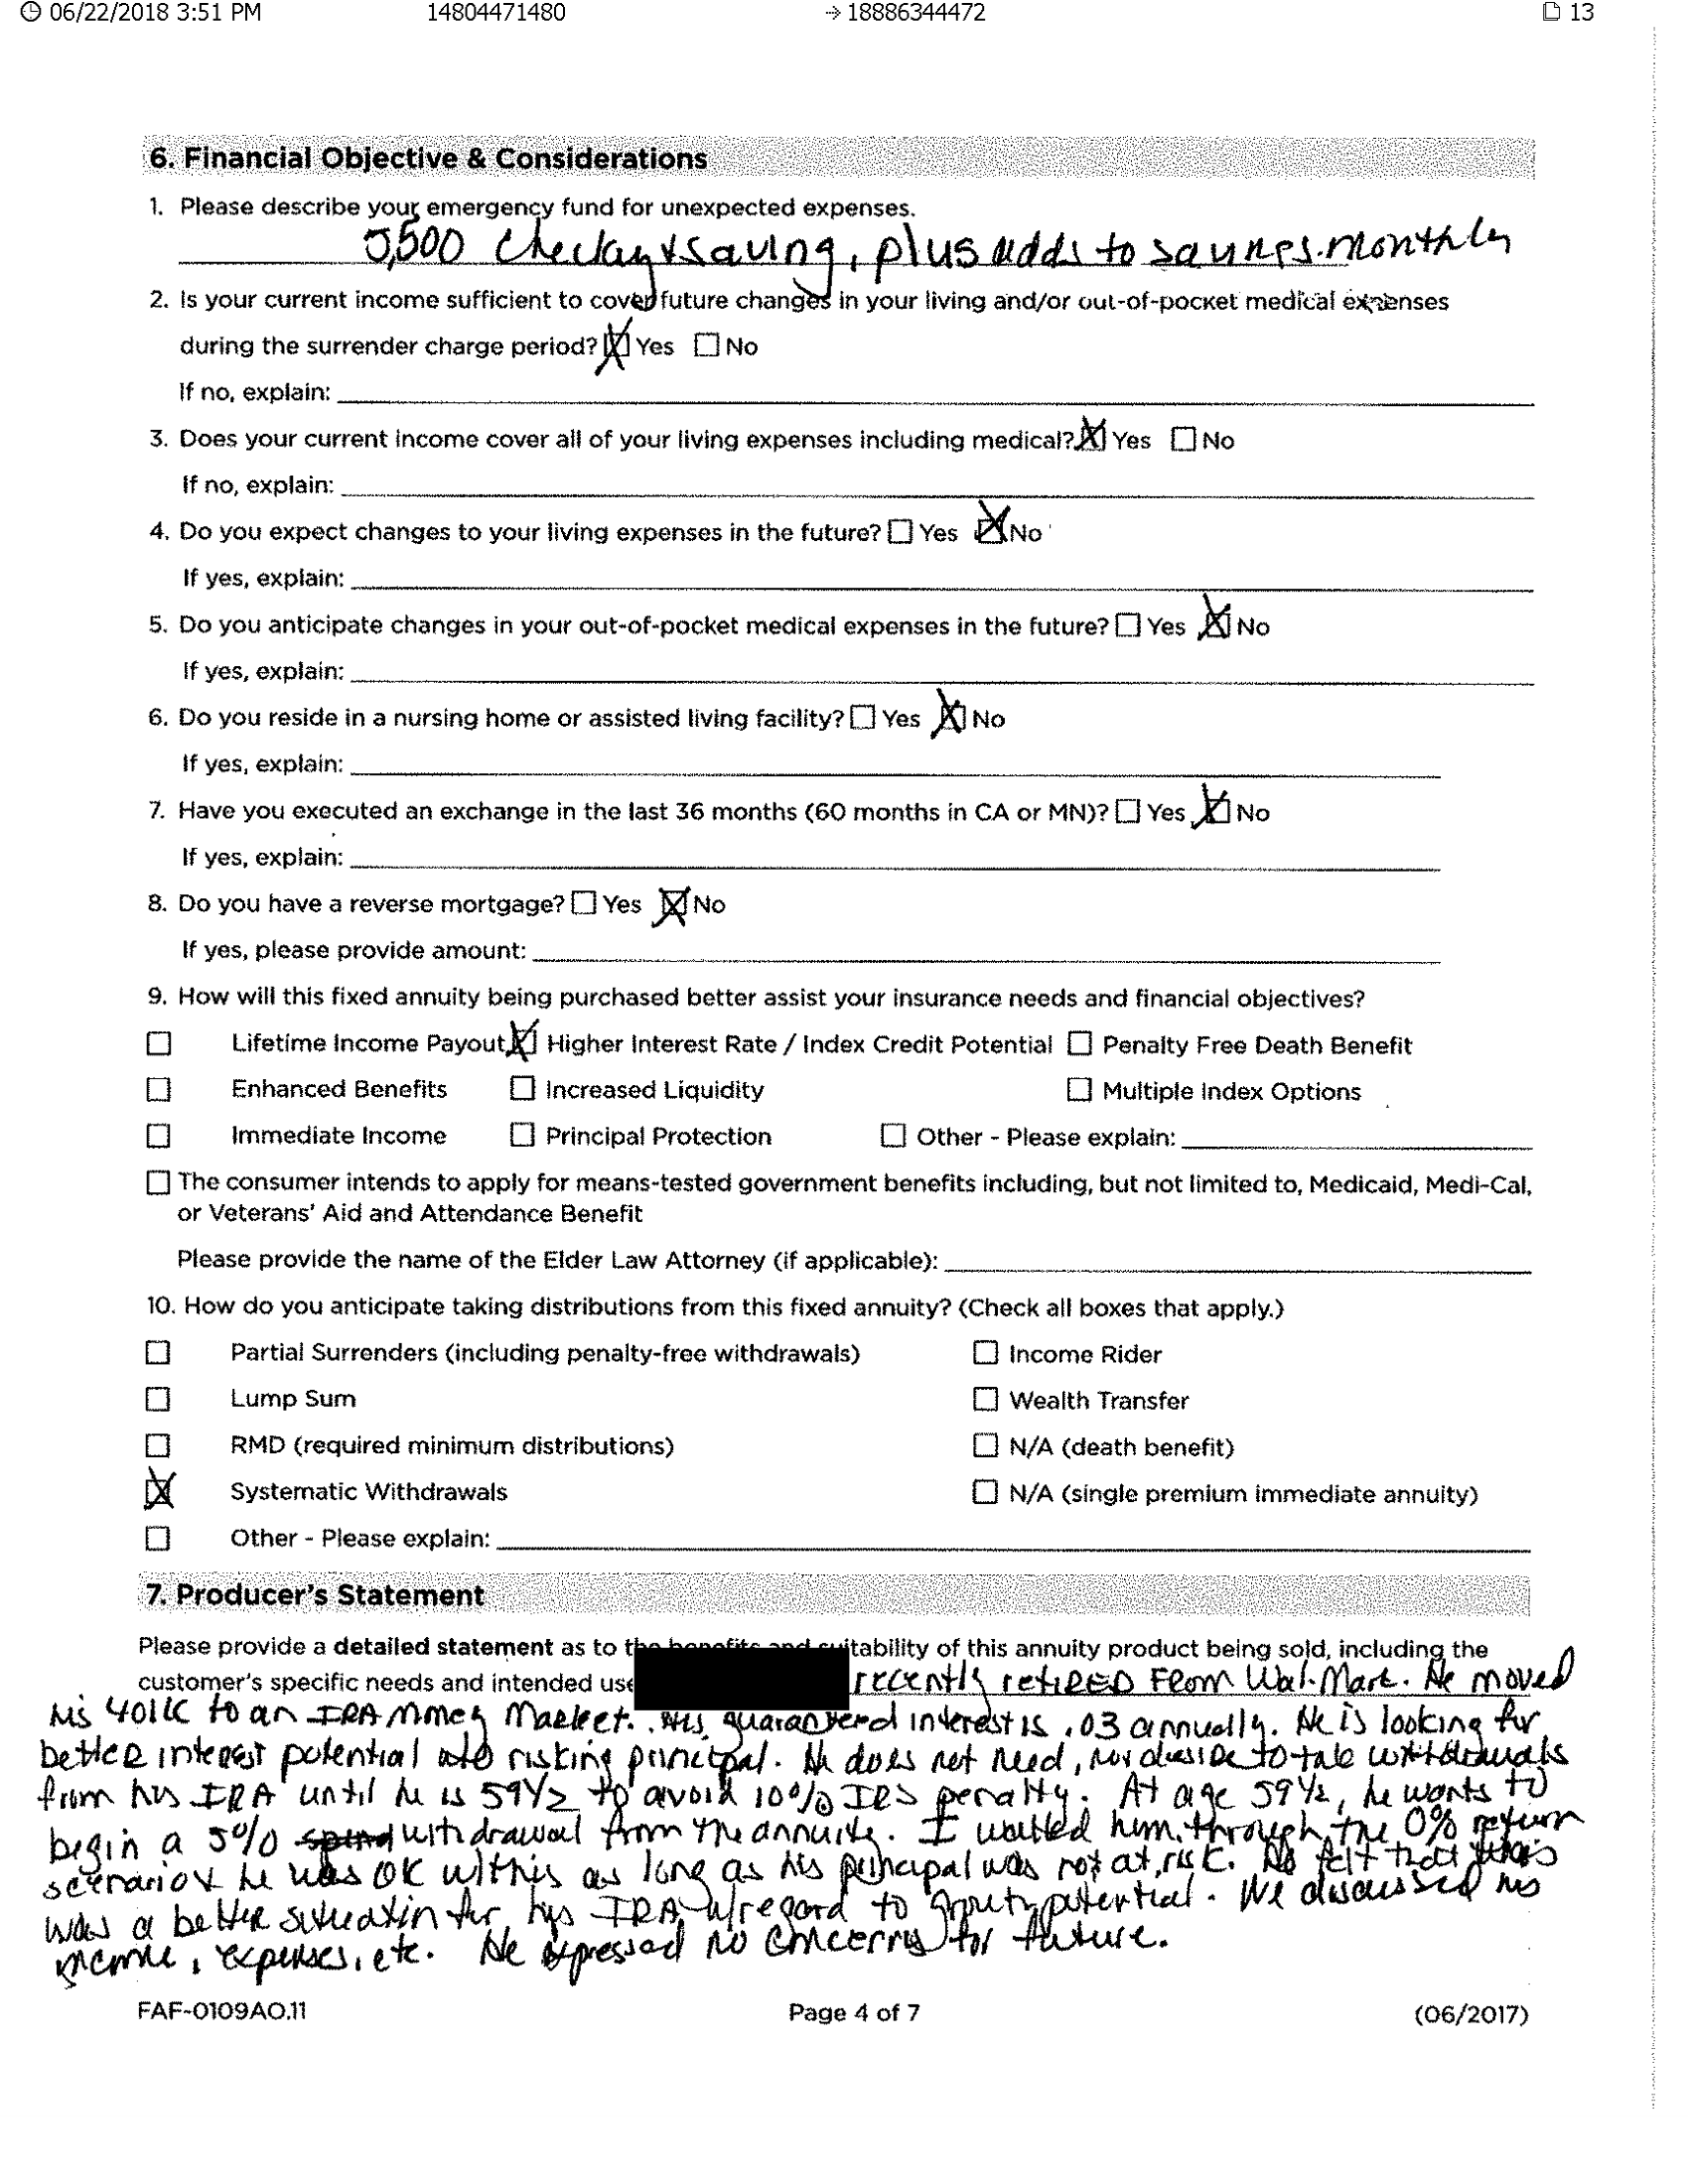 06/22/2018 3:51 PM 14804471480 → 18886344472 13
6. Financial Objective & Considerations
1. Please describe your emergency fund for unexpected expenses.
5,500 checking & saving, plus adds to savings monthly
2. Is your current income sufficient to cover future changes in your living and/or out-of-pocket medical expenses
during the surrender charge period? ☒ Yes ☐ No
If no, explain:
3. Does your current income cover all of your living expenses including medical? ☒ Yes ☐ No
If no, explain:
4. Do you expect changes to your living expenses in the future? ☐ Yes ☒ No
If yes, explain:
5. Do you anticipate changes in your out-of-pocket medical expenses in the future? ☐ Yes ☒ No
If yes, explain:
6. Do you reside in a nursing home or assisted living facility? ☐ Yes ☒ No
If yes, explain:
7. Have you executed an exchange in the last 36 months (60 months in CA or MN)? ☐ Yes ☒ No
If yes, explain:
8. Do you have a reverse mortgage? ☐ Yes ☒ No
If yes, please provide amount:
9. How will this fixed annuity being purchased better assist your insurance needs and financial objectives?
☐ Lifetime Income Payout ☒ Higher Interest Rate / Index Credit Potential ☐ Penalty Free Death Benefit
☐ Enhanced Benefits ☐ Increased Liquidity ☐ Multiple Index Options
☐ Immediate Income ☐ Principal Protection ☐ Other - Please explain:
☐ The consumer intends to apply for means-tested government benefits including, but not limited to, Medicaid, Medi-Cal,
or Veterans' Aid and Attendance Benefit
Please provide the name of the Elder Law Attorney (if applicable):
10. How do you anticipate taking distributions from this fixed annuity? (Check all boxes that apply.)
☐ Partial Surrenders (including penalty-free withdrawals) ☐ Income Rider
☐ Lump Sum ☐ Wealth Transfer
☐ RMD (required minimum distributions) ☐ N/A (death benefit)
☒ Systematic Withdrawals ☐ N/A (single premium immediate annuity)
☐ Other - Please explain:
7. Producer's Statement
Please provide a detailed statement as to the benefits and suitability of this annuity product being sold, including the
customer's specific needs and intended use recently retired from Wal-Mart. He moved
his 401K to an IRA Money Market. His guaranteed interest is .03 annually. He is looking for
better interest potential w/o risking principal. He does not need, nor desire to take withdrawals
from his IRA until he is 59½ to avoid 10% IRS penalty. At age 59½, he wants to
begin a 5% withdrawal from the annuity. I walked him through the 0% return
scenario & he was OK w/this as long as his principal was not at risk. He felt that this
was a better situation for his IRA w/regard to growth potential. We discussed his
income, expenses, etc. He expressed no concerns for future.
FAF-0109AO.11 Page 4 of 7 (06/2017)